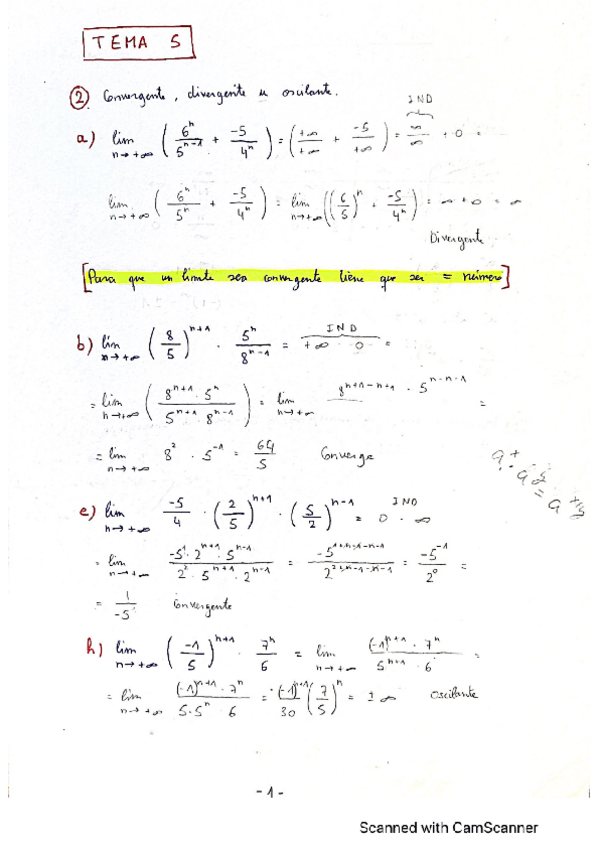 TEMA 5
② Convergente, divergente u oscilante.
IND
a) lim n→+∞ (6^n/5^(n-1) + -5/4^n) = (+∞/+∞ + -5/+∞) = ∞/∞ + 0 =
lim n→+∞ (6^n/5^n + -5/4^n) = lim n→+∞ ((6/5)^n + -5/4^n) = ∞ + 0 = ∞
Divergente
[Para que un limite sea convergente tiene que ser = número]
IND
b) lim n→+∞ (8/5)^(n+1) · 5^n/8^(n-1) = +∞ · 0 =
= lim n→+∞ (8^(n+1) · 5^n / 5^(n+1) · 8^(n-1)) = lim n→+∞ 8^(n+1-n+1) · 5^(n-n-1) =
= lim n→+∞ 8^2 · 5^-1 = 64/5 Converge
IND
e) lim n→+∞ -5/4 · (2/5)^(n+1) · (5/2)^(n-1) = 0 · ∞
= lim n→+∞ -5^1 · 2^(n+1) · 5^(n-1) / 2^2 · 5^(n+1) · 2^(n-1) = -5^(1+n-1-n-1) / 2^(2+n-1-n-1) = -5^-1/2^0 =
= 1/-5^1 Convergente
h) lim n→+∞ (-1/5)^(n+1) · 7^n/6 = lim n→+∞ (-1)^(n+1) · 7^n / 5^(n+1) · 6 =
= lim n→+∞ (-1)^(n+1) · 7^n / 5·5^n · 6 = (-1)^(n+1)/30 (7/5)^n = ± ∞ oscilante
- 1 -
Scanned with CamScanner